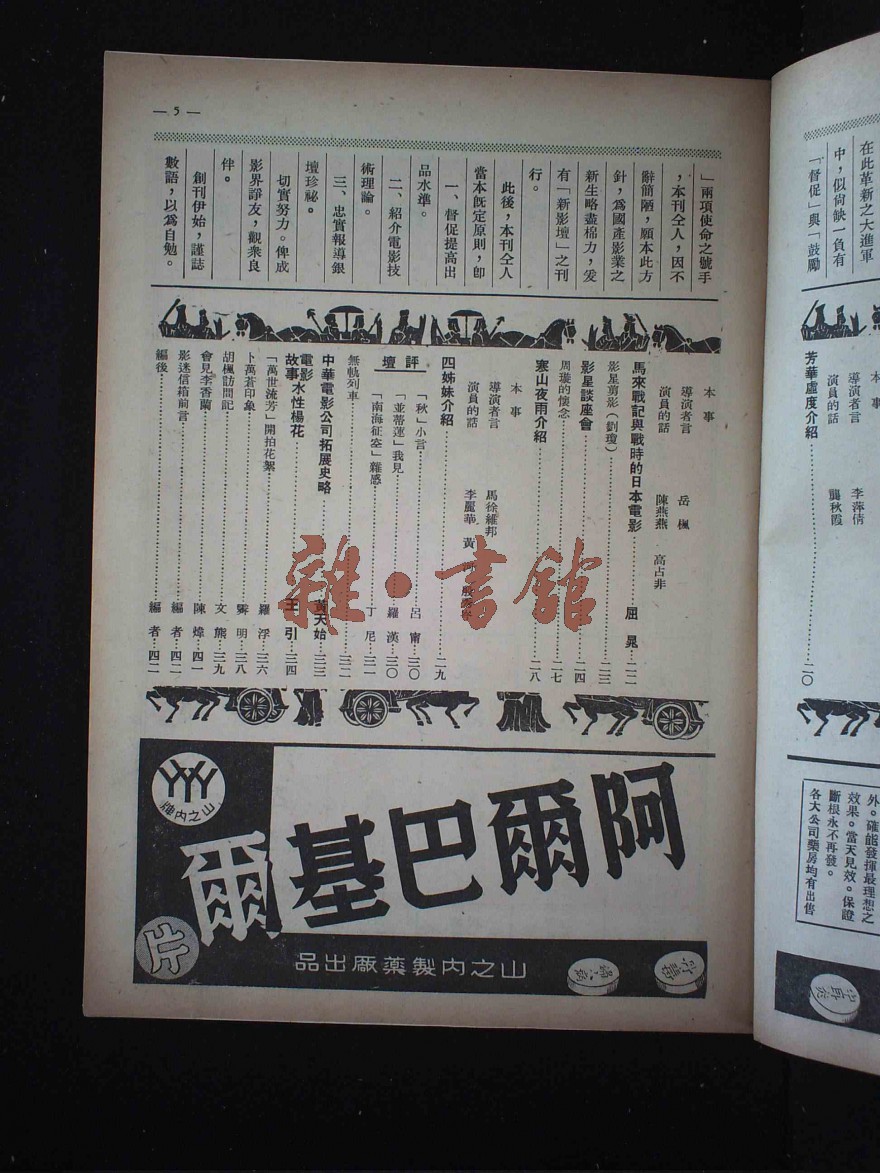 — 5 —
在此革新之大進軍
中，似尙缺一負有
「督促」與「鼓勵
」兩項使命之號手
，本刊仝人，因不
辭簡陋，願本此方
針，爲國產影業之
新生略盡棉力，爰
有「新影壇」之刊
行。
此後，本刊仝人
當本旣定原則，卽
一、督促提高出
品水準。
二、紹介電影技
術理論。
三、忠實報導銀
壇珍祕。
切實努力。俾成
影界諍友，觀衆良
伴。
創刊伊始，謹誌
數語，以爲自勉。
芳華虛度介紹……二〇
導演者言 李萍倩
演員的話 龔秋霞
本事
導演者言 岳楓
演員的話 陳燕燕 高占非
馬來戰記與戰時的日本電影……屈晃…二二
影星剪影(劉瓊)……二三
影星談座會……二四
周璇的懷念……二七
寒山夜雨介紹……二八
本事
導演者言 馬徐維邦
演員的話 李麗華 黃河
四姊妹介紹……二九
評壇
「秋」小言……呂甯…三〇
「並蒂蓮」我見……羅漢…三〇
「南海征空」雜感……丁尼…三一
無軌列車……三二
中華電影公司拓展史略……黃天始…三三
電影故事 水性楊花……王引…三四
「萬世流芳」開拍花絮……羅浮…三六
卜萬蒼印象……霽明…三八
胡楓訪問記……文熊…三九
會見李香蘭……陳煒…四一
影迷信箱前言……編者…四二
編後……編者…四二
雜·書館
外。確能發揮最理想之
效果。當天見效。保證
斷根永不再發。
各大公司藥房均有出售
山之內牌
阿爾巴基爾
片
山之內製藥廠出品